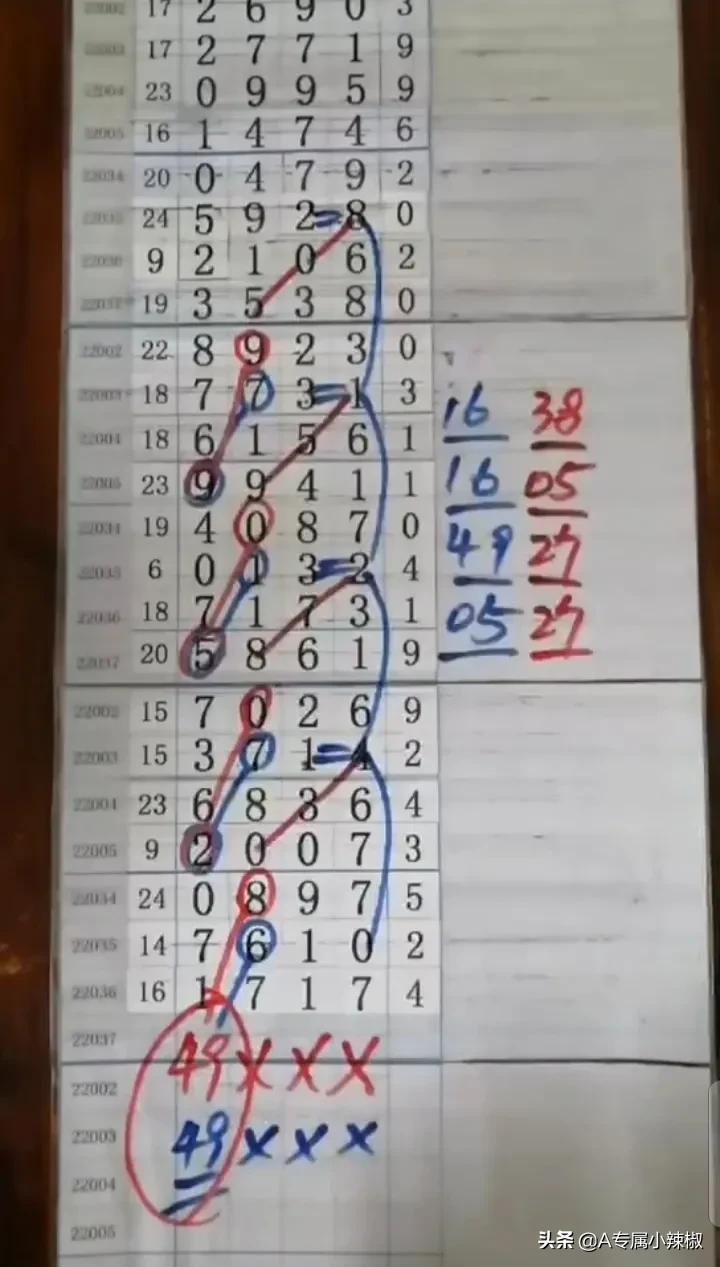 22002 17 2 6 9 0 3
22003 17 2 7 7 1 9
22004 23 0 9 9 5 9
22005 16 1 4 7 4 6
22034 20 0 4 7 9 2
22035 24 5 9 2 = 8 0
22036 9 2 1 0 6 2
22037 19 3 5 3 8 0
22002 22 8 9 2 3 0
22003 18 7 7 3 = 1 3 16 38
22004 18 6 1 5 6 1
22005 23 9 9 4 1 1 16 05
22034 19 4 0 8 7 0 49 27
22035 6 0 1 3 = 2 4
22036 18 7 1 7 3 1 05 27
22037 20 5 8 6 1 9
22002 15 7 0 2 6 9
22003 15 3 7 1 = 4 2
22004 23 6 8 3 6 4
22005 9 2 0 0 7 3
22034 24 0 8 9 7 5
22035 14 7 6 1 0 2
22036 16 1 7 1 7 4
22037
49 X X X
22002
22003 49 X X X
22004
22005
头条 @A专属小辣椒